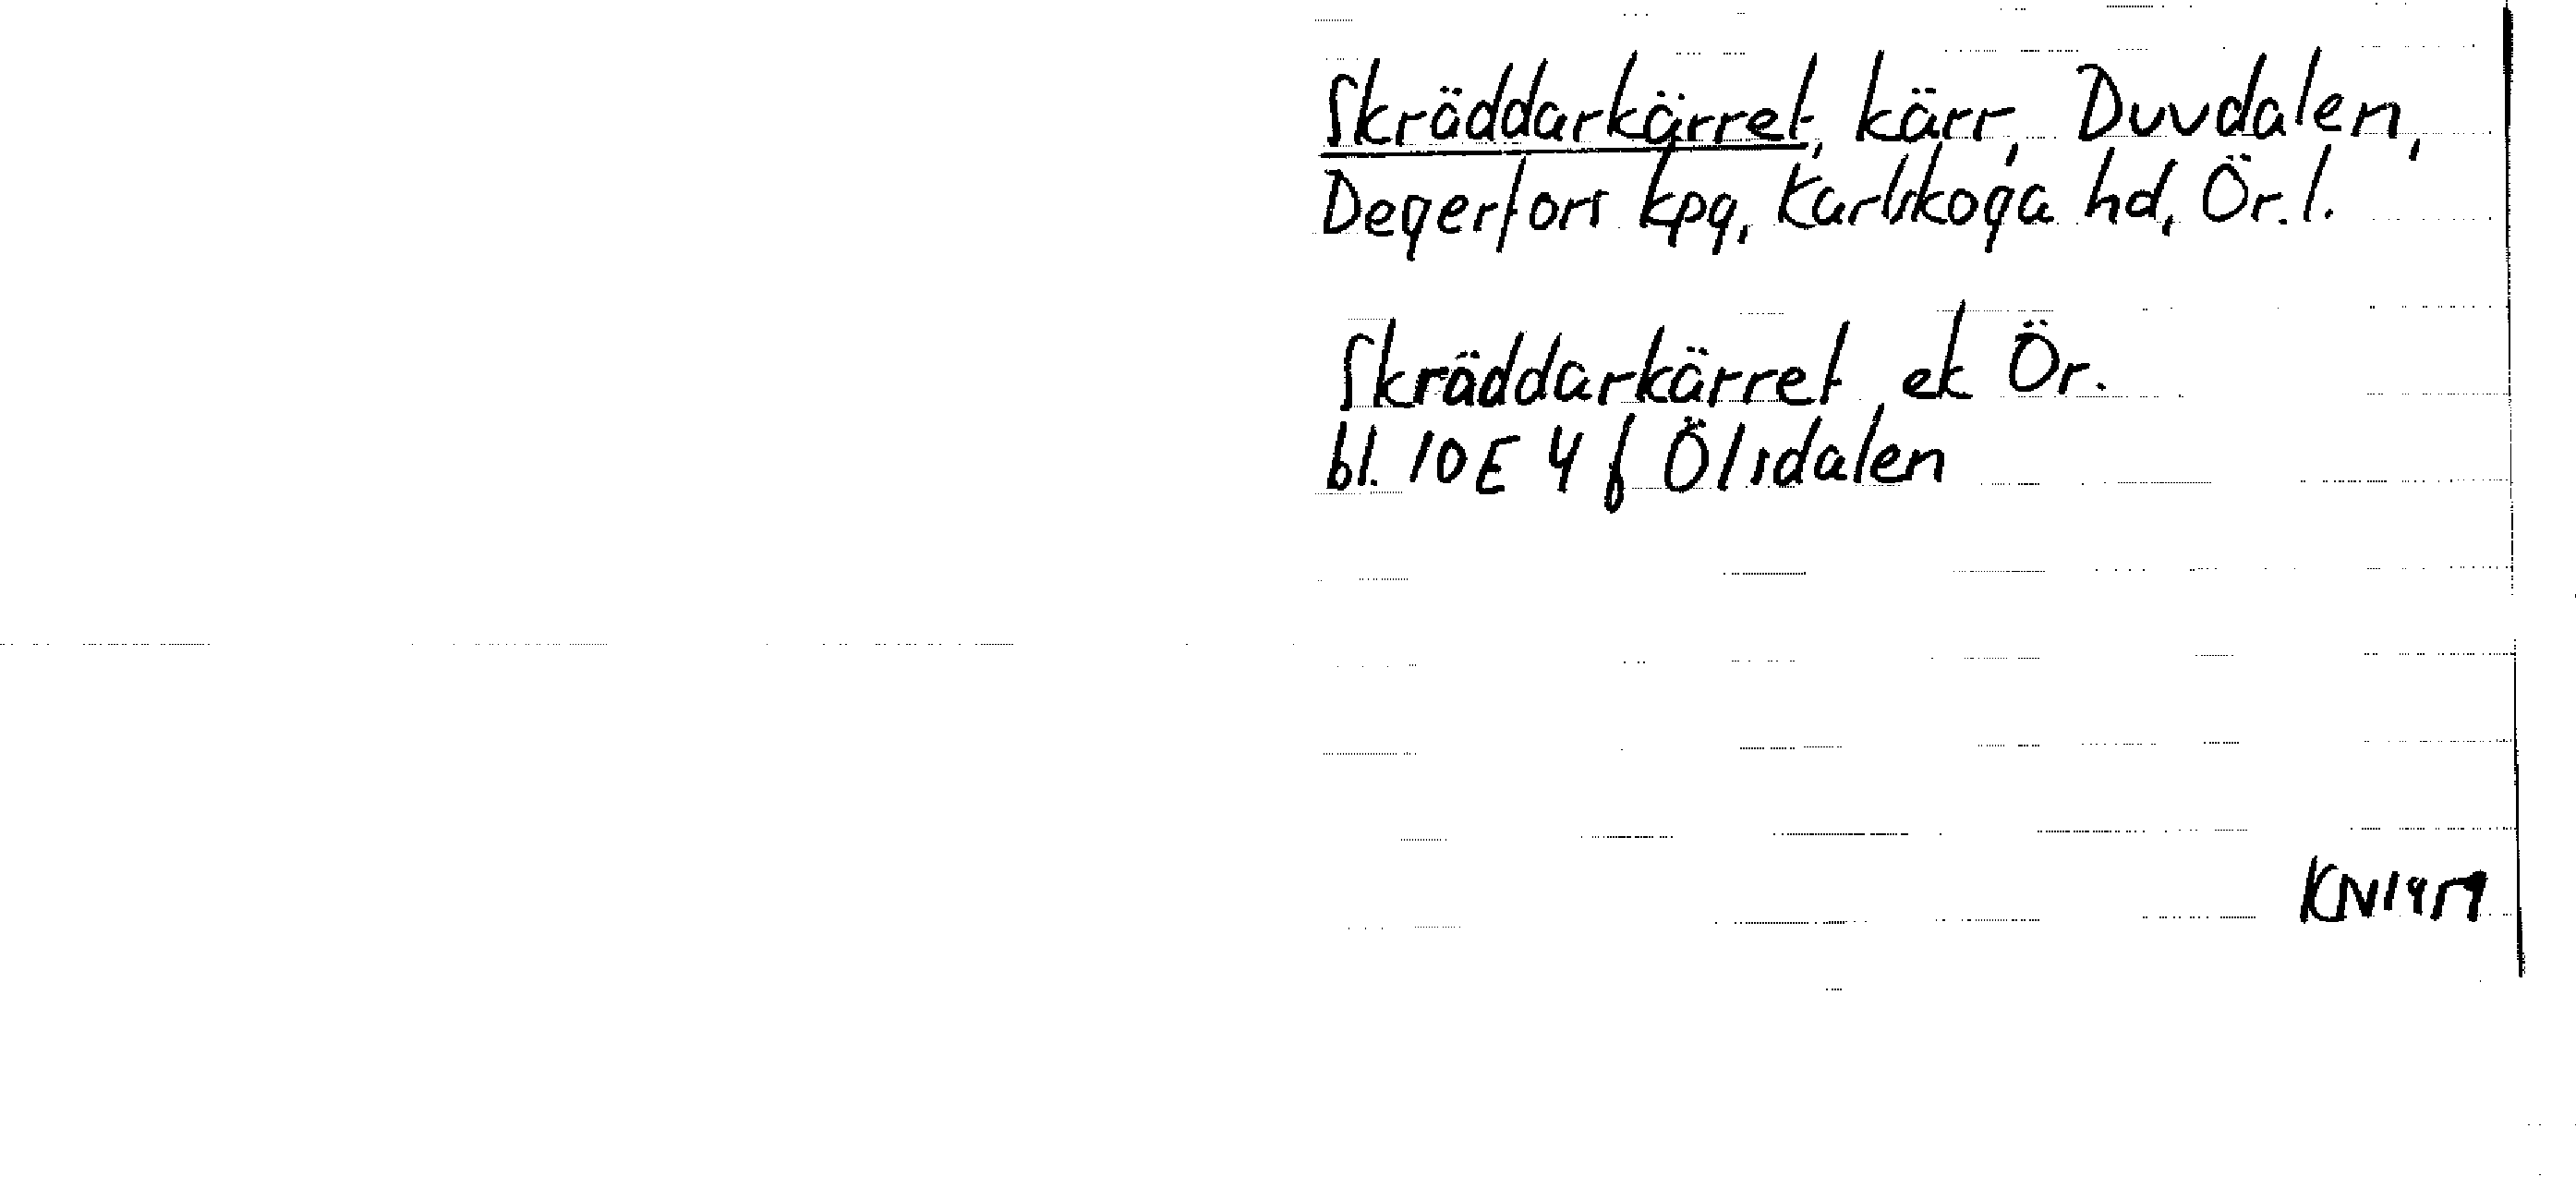 Skräddarkärret, kärr, Duvdalen,
Degerfors kpg, Karlskoga hd, Ör. l.
Skräddarkärret ek Ör.
bl. 10E 4 f Ölsdalen